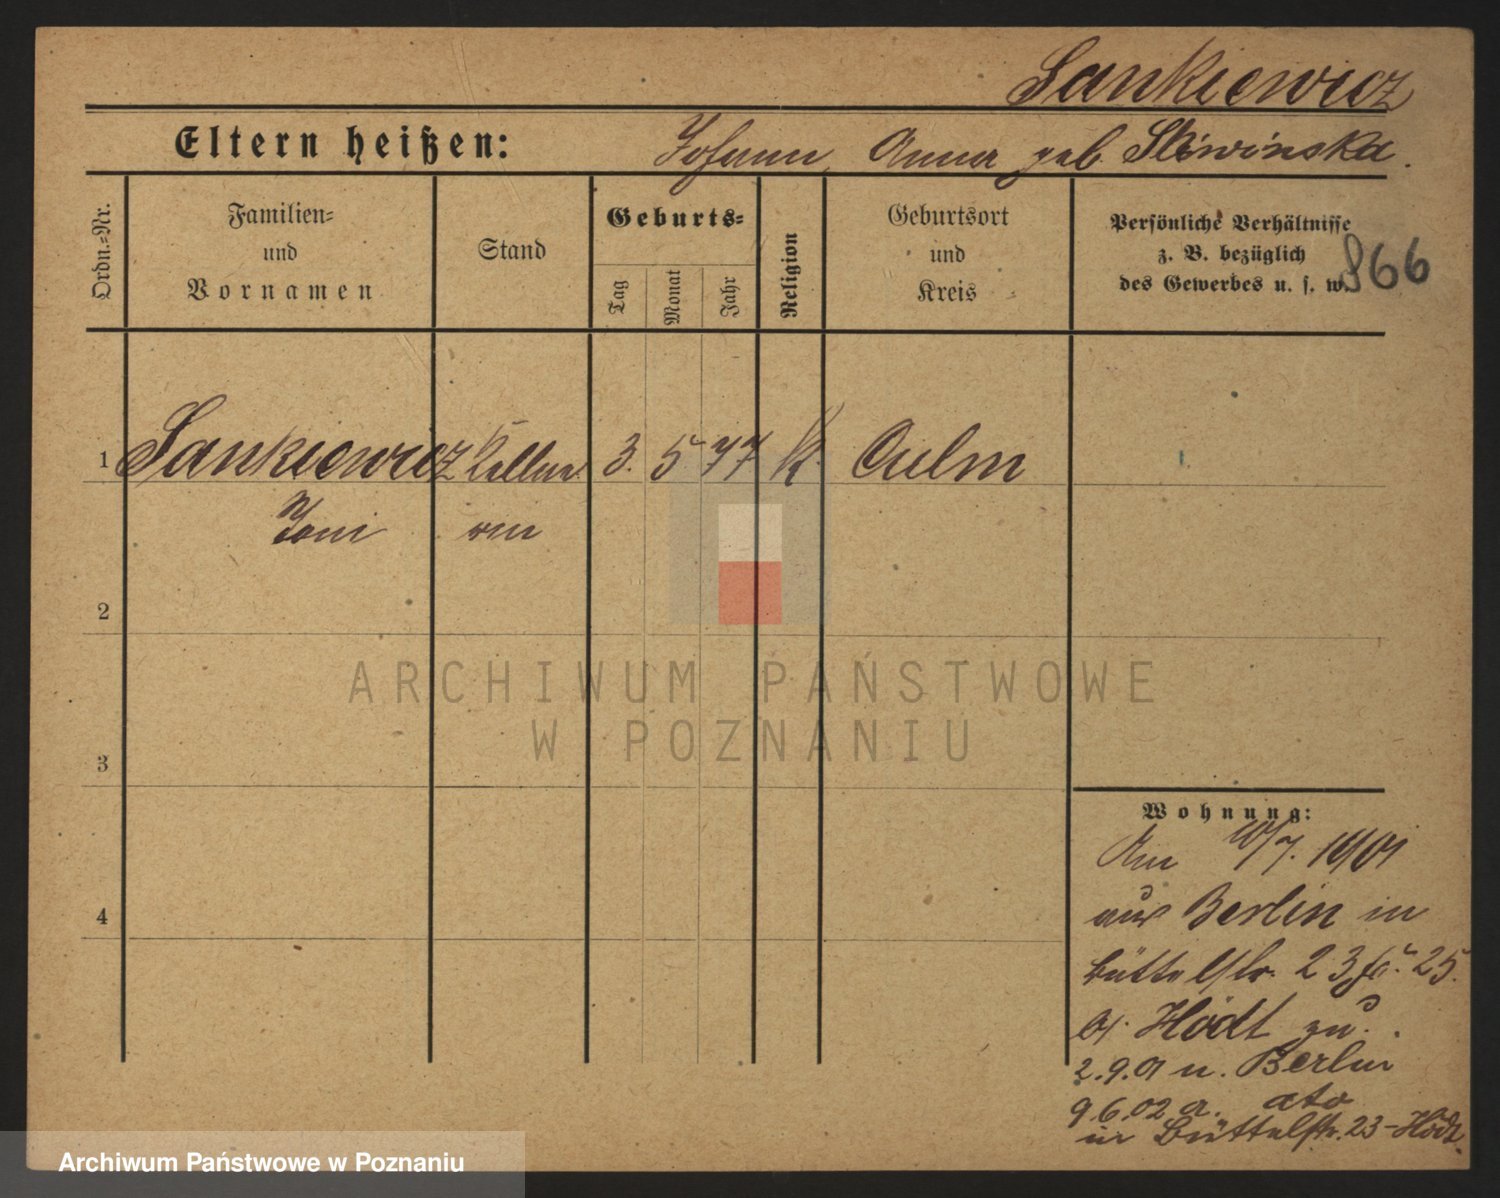 Sankiewicz
Eltern heißen: Johann, Anna geb. Sliwinska.
Ordn.=Nr.
Familien=
und
Vornamen
Stand
Geburts=
Tag
Monat
Jahr
Religion
Geburtsort
und
Kreis
Persönliche Verhältnisse
z. B. bezüglich
des Gewerbes u. s. w.
866
1 Sankiewicz Kellne 3. 5 77 K. Culm
Toni rin
2
3
4
Wohnung:
Am 10/7. 1901
aus Berlin in
Büttelstr. 23 25.
b. Hödt zu.
2.9.01 n. Berlin
9.6.02 a. dto
in Büttelstr. 23 - Hödt.
ARCHIWUM PAŃSTWOWE
W POZNANIU
Archiwum Państwowe w Poznaniu